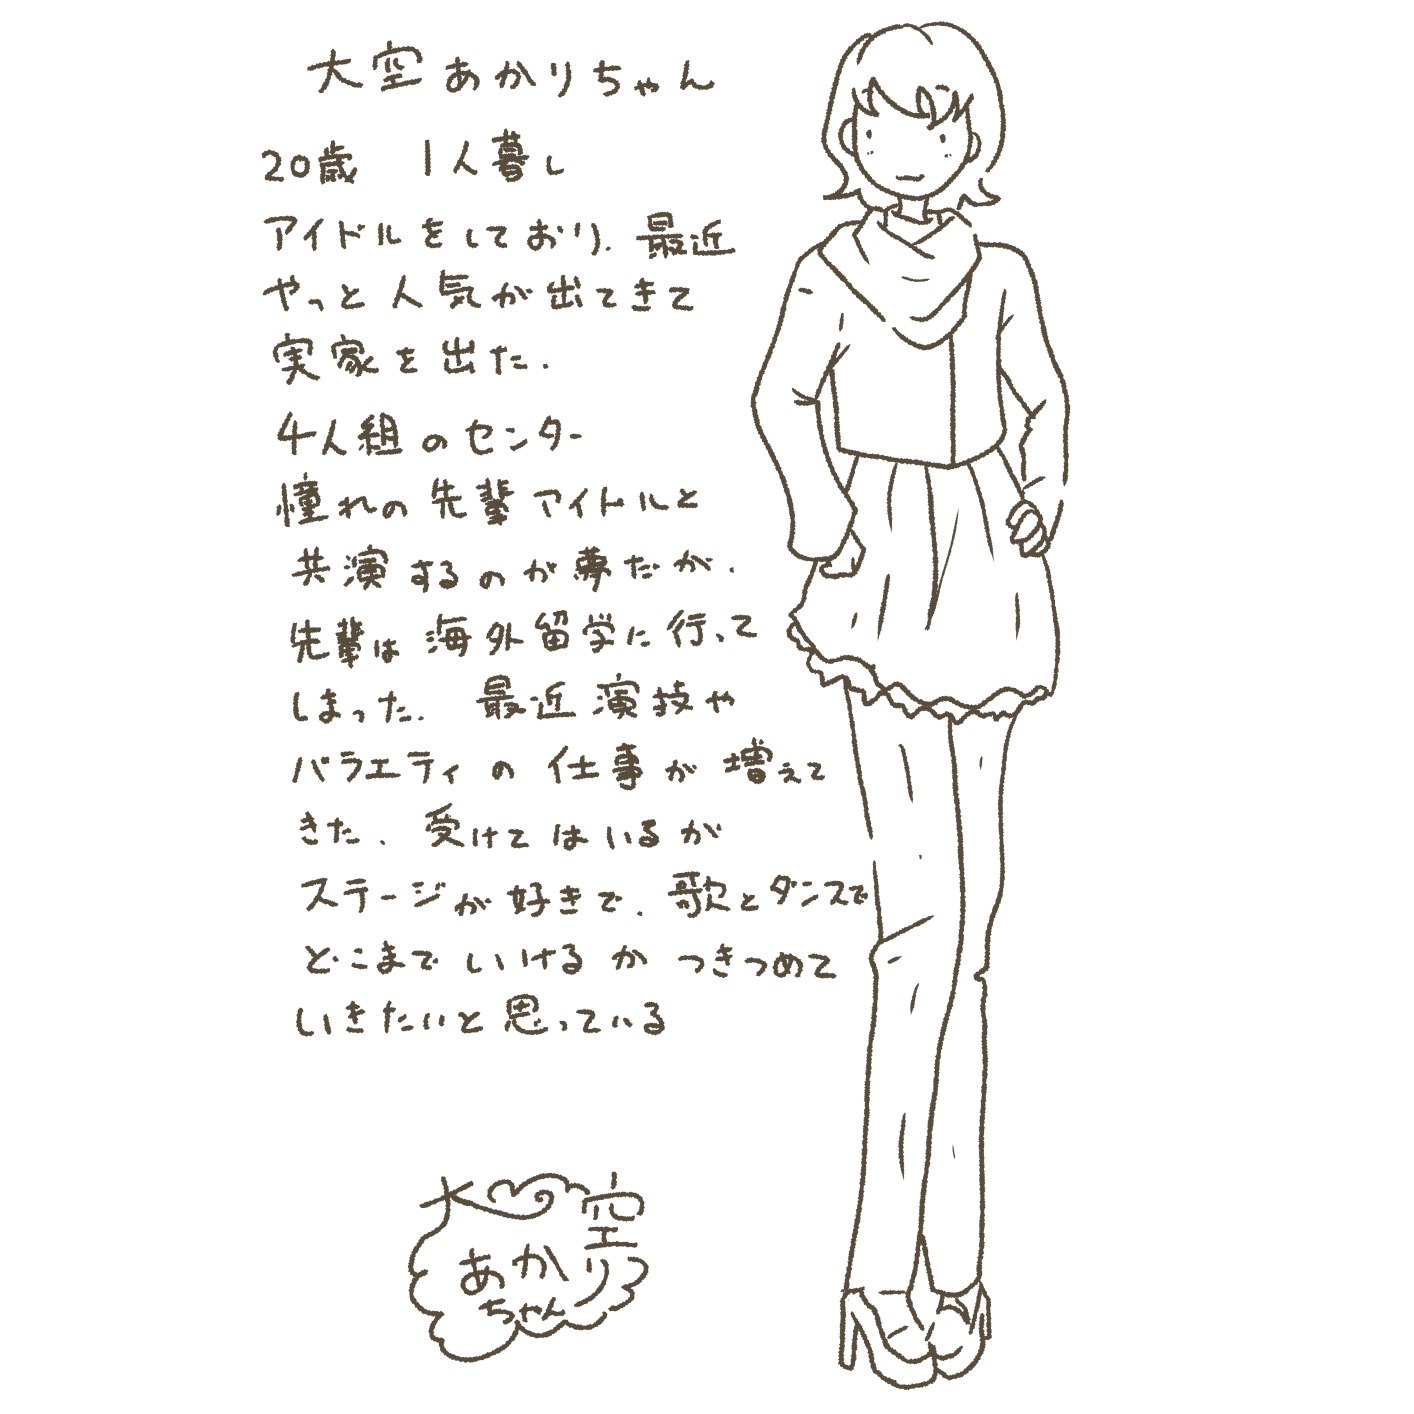 大空あかりちゃん
20歳 1人暮し
アイドルをしており、最近
やっと人気が出てきて
実家を出た.
4人組のセンター
憧れの先輩アイドルと
共演するのが夢だが、
先輩は海外留学に行って
しまった. 最近演技や
バラエティの仕事が増えて
きた. 受けてはいるが
ステージが好きで、歌とダンスで
どこまでいけるかつきつめて
いきたいと思っている
大空
あかり
ちゃん